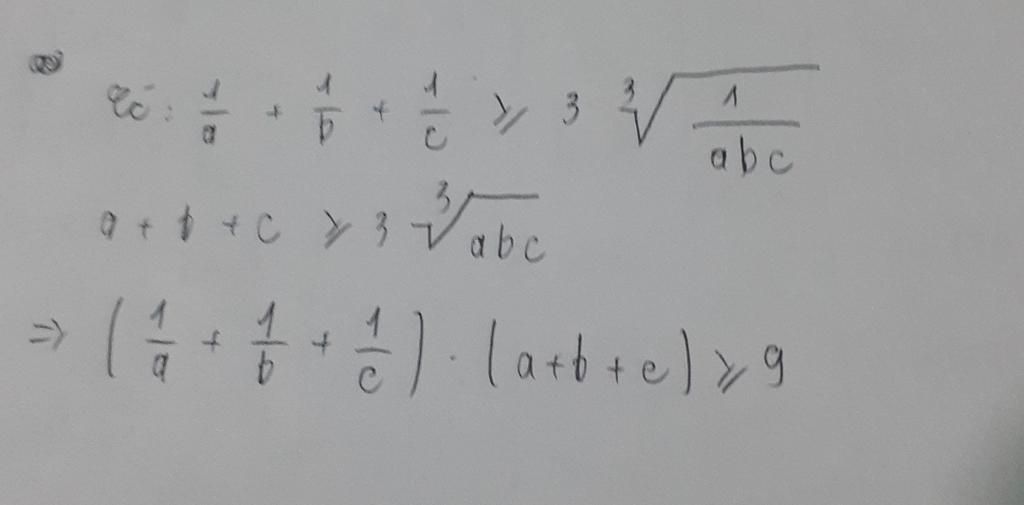 Có: 1/a + 1/b + 1/c ≥ 3 ∛(1/abc)
a + b + c ≥ 3 ∛(abc)
⇒ (1/a + 1/b + 1/c) . (a+b+c) ≥ 9